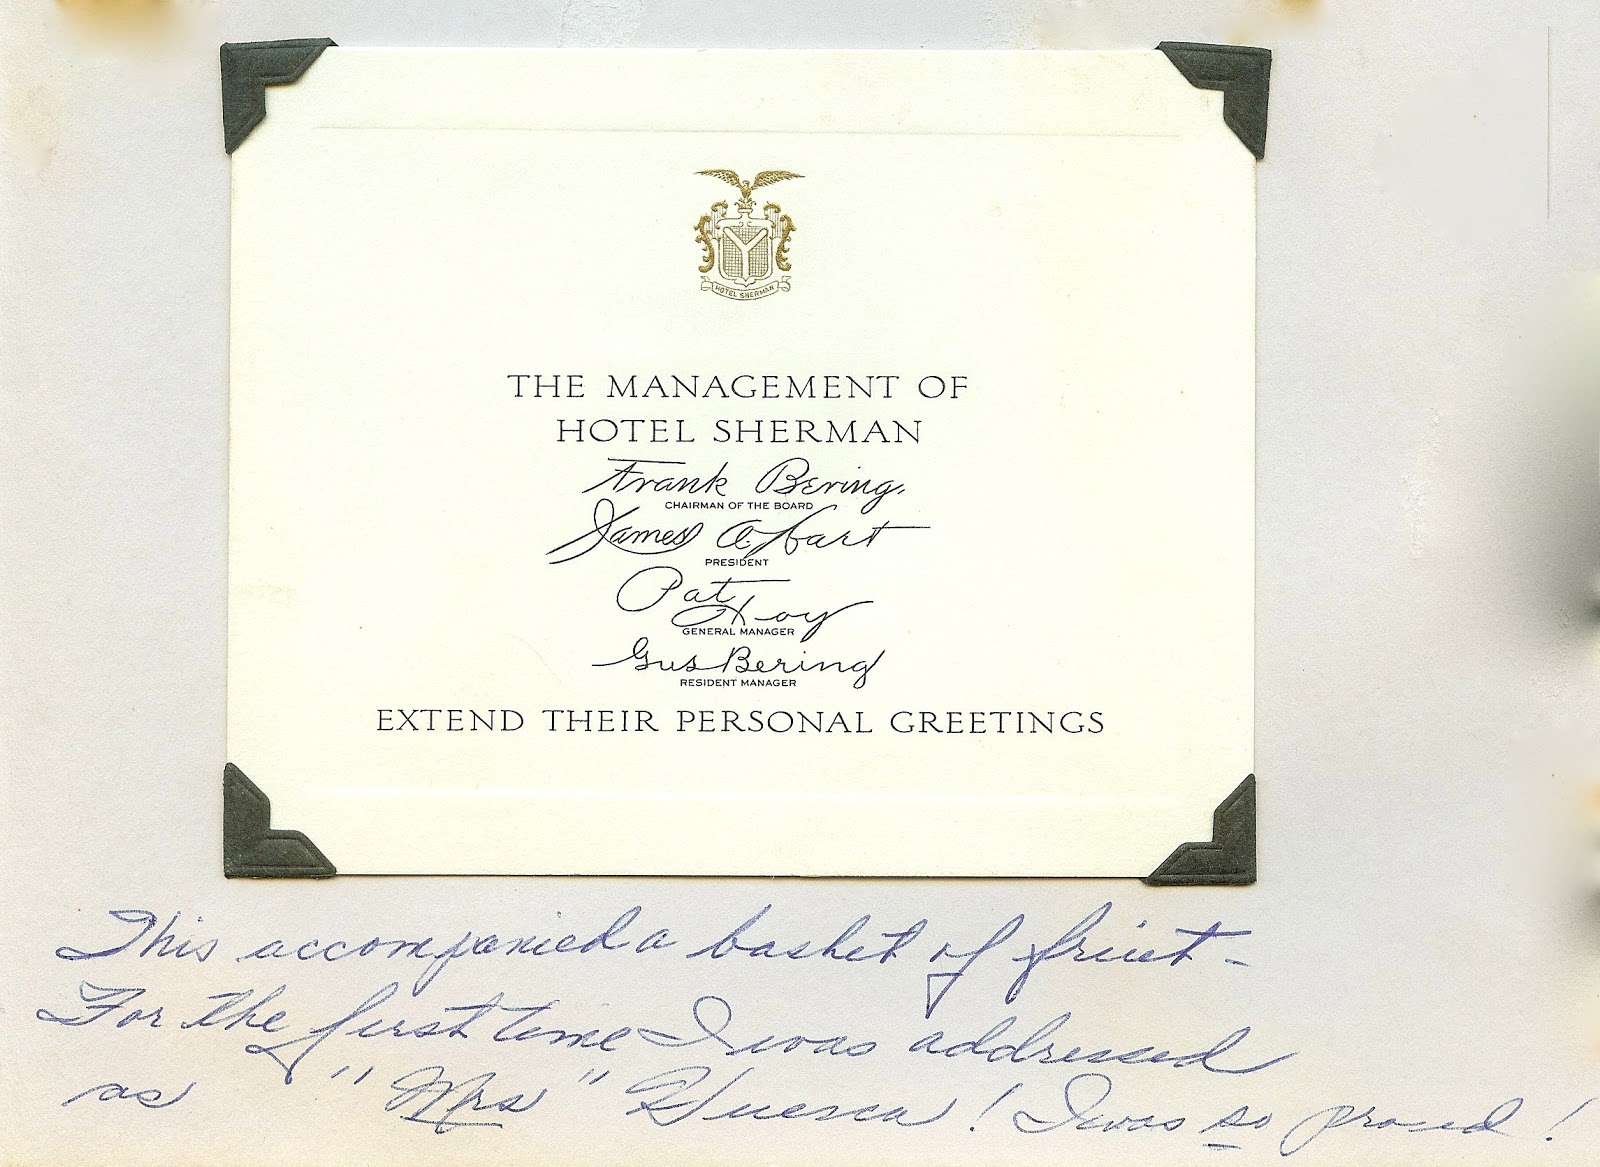 Y
HOTEL SHERMAN
THE MANAGEMENT OF
HOTEL SHERMAN
Frank Bering
CHAIRMAN OF THE BOARD
James A. Hart
PRESIDENT
Pat Hoy
GENERAL MANAGER
Gus Bering
RESIDENT MANAGER
EXTEND THEIR PERSONAL GREETINGS
This accompanied a basket of fruit -
For the first time I was addressed
as "Mrs" Huesca! I was so proud!